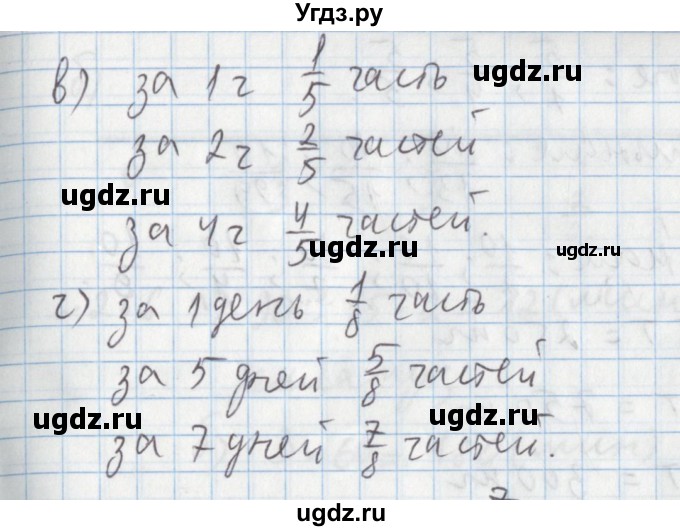 Угдз.ру
в) за 1 ч 1/5 часть
ugdz.ru
за 2 ч 2/5 частей
ugdz.ru
за 4 ч 4/5 частей.
ugdz.ru
ugdz.ru
г) за 1 день 1/8 часть
за 5 дней 5/8 частей
ugdz.ru
ugdz.ru
за 7 дней 7/8 частей.